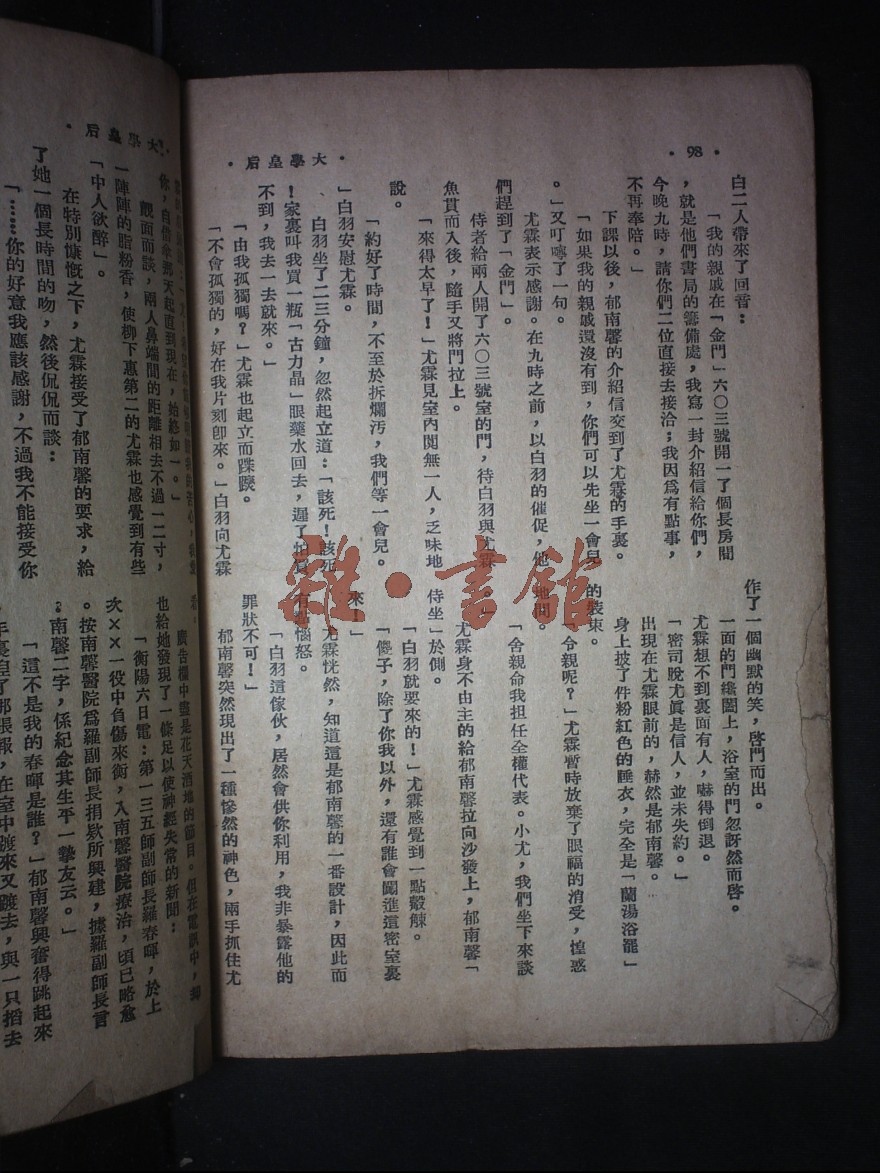 • 98 •
• 大學皇后 •
白二人帶來了回音：
「我的親戚在「金門」六〇三號開一了個長房間
，就是他們書局的籌備處，我寫一封介紹信給你們，
今晚九時，請你們二位直接去接洽；我因爲有點事，
不再奉陪。」
下課以後，郁南馨的介紹信交到了尤霖的手裏。
「如果我的親戚還沒有到，你們可以先坐一會兒
。」又叮嚀了一句。
尤霖表示感謝。在九時之前，以白羽的催促，他
們趕到了「金門」。
侍者給兩人開了六〇三號室的門，待白羽與尤霖
魚貫而入後，隨手又將門拉上。
「來得太早了！」尤霖見室內閴無一人，乏味地
說。
「約好了時間，不至於拆爛汚，我們等一會兒。
」白羽安慰尤霖。
、白羽坐了二三分鐘，忽然起立道：「該死！該死
！家裏叫我買一瓶「古力晶」眼藥水回去，遲了怕買
不到，我去一去就來。」
「由我孤獨嗎？」尤霖也起立而蹀躞。
「不會孤獨的，好在我片刻卽來。」白羽向尤霖
作了一個幽默的笑，啓門而出。
一面的門纔闔上，浴室的門忽訝然而啓。
尤霖想不到裏面有人，嚇得倒退。
「密司脫尤眞是信人，並未失約。」
出現在尤霖眼前的，赫然是郁南馨。
身上披了件粉紅色的睡衣，完全是「蘭湯浴罷」
的裝束。
「令親呢？」尤霖暫時放棄了眼福的消受，惶惑
地問。
「舍親命我担任全權代表。小尤，我們坐下來談
。」
尤霖身不由主的給郁南馨拉向沙發上，郁南馨「
侍坐」於側。
「白羽就要來的！」尤霖感覺到一點觳觫。
「傻子，除了你我以外，還有誰會闖進這密室裏
來！」
尤霖恍然，知道這是郁南馨的一番設計，因此而
有點惱怒。
「白羽這傢伙，居然會供你利用，我非暴露他的
罪狀不可！」
郁南馨突然現出了一種慘然的神色，兩手抓住尤
• 大學皇后 •
你，自借傘那天起直到現在，始終如一。」
覿面而談，兩人鼻端間的距離相去不過一二寸，
一陣陣的脂粉香，使柳下惠第二的尤霖也感覺到有些
「中人欲醉」。
在特別慷慨之下，尤霖接受了郁南馨的要求，給
了她一個長時間的吻，然後侃侃而談：
「……你的好意我應該感謝，不過我不能接受你
廣告欄中盡是花天酒地的節目。但在電訊中，
也給她發現了一條足以使神經失常的新聞：
「衡陽六日電：第一三五師副師長羅春暉，於上
次××一役中負傷來衡，入南馨醫院療治，頃已略愈
。按南馨醫院爲羅副師長捐欵所興建，據羅副師長言
：南馨二字，係紀念其生平一摯友云。」
「這不是我的春暉是誰？」郁南馨興奮得跳起來
手裏担了那張報，在室中踱來又踱去，與一只搯去
雜·書館